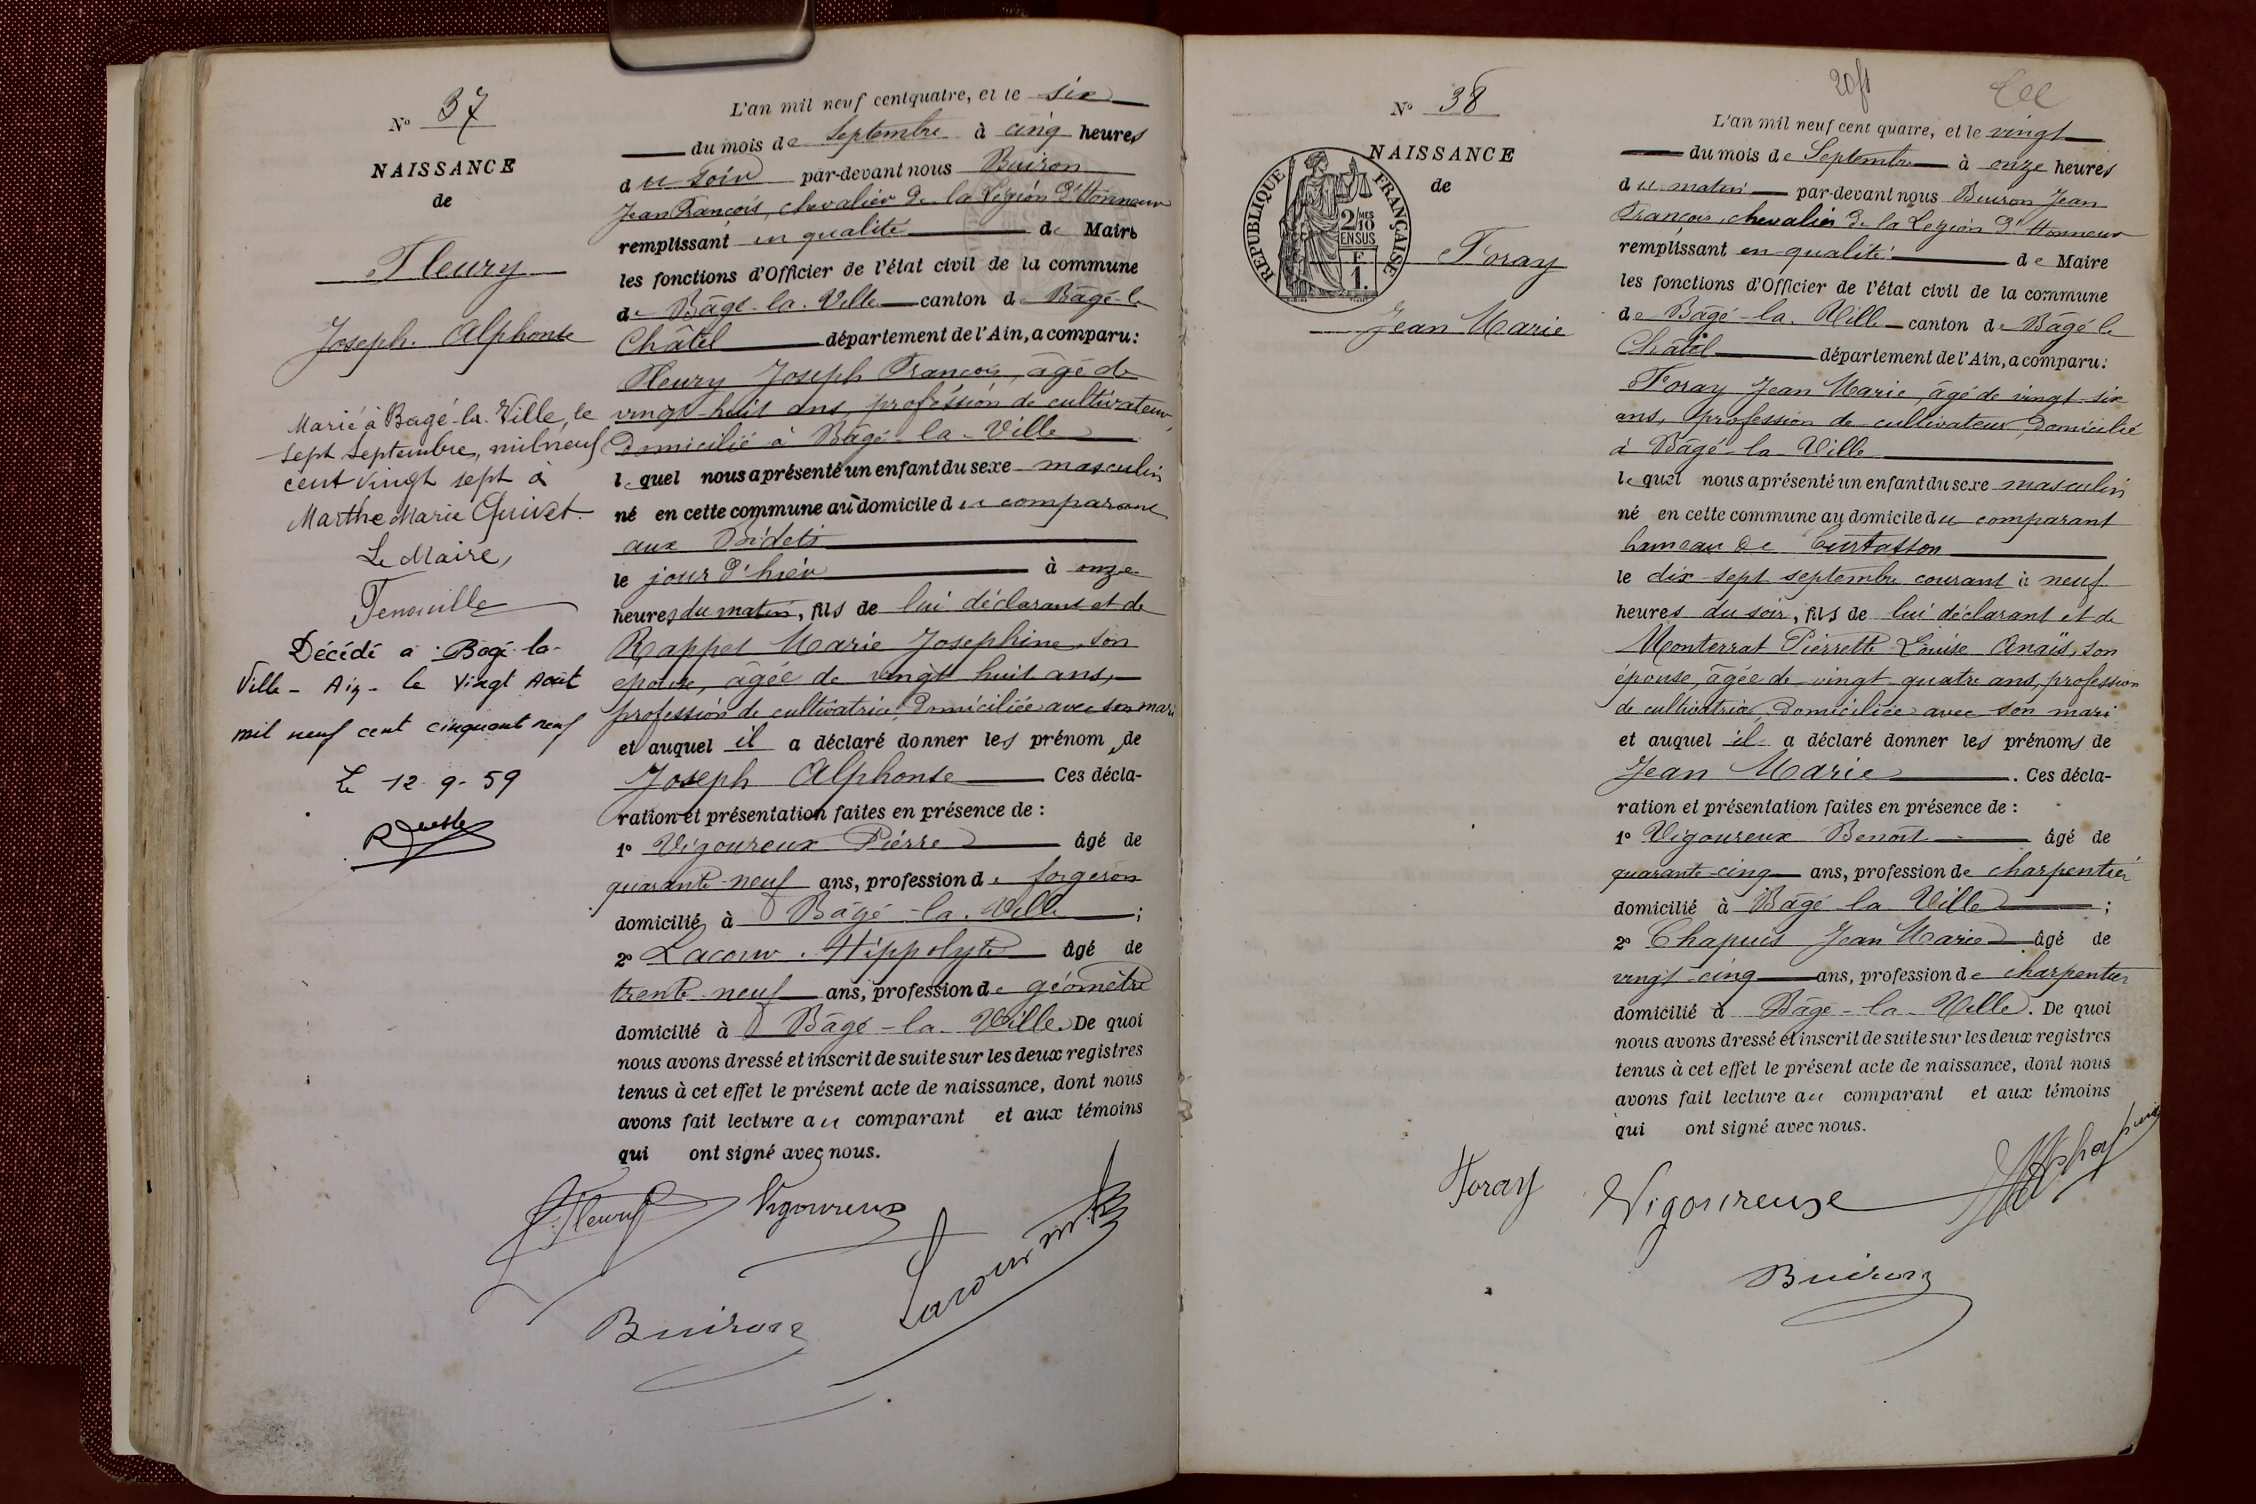 N° 37
NAISSANCE
de
Fleury
Joseph Alphonse
Marié à Bagé-la-Ville, le
sept septembre, mil neuf
cent vingt sept à
Marthe Marie Guivet.
Le Maire,
Décédé à Bagé-la-
Ville - Ain - le vingt Août
mil neuf cent cinquant neuf
Le 12-9-59
L'an mil neuf cent quatre, et le six
du mois de Septembre à cinq heures
du soir par-devant nous Buiron
Jean François, chevalier de la Légion d'Honneur
remplissant en qualité de Maire
les fonctions d'Officier de l'état civil de la commune
de Bâgé-la-Ville canton de Bâgé-le
Châtel département de l'Ain, a comparu:
Fleury Joseph François, âgé de
vingt-huit ans, profession de cultivateur,
domicilié à Bâgé-la-Ville
lequel nous a présenté un enfant du sexe masculin
né en cette commune au domicile du comparant
aux
le jour d'hier à onze
heures du matin, fils de lui déclarant et de
Rappet Marie Josephine, son
épouse, âgée de vingt huit ans,
profession de cultivatrice, domiciliée avec son mari
et auquel il a déclaré donner les prénom de
Joseph Alphonse Ces décla-
ration et présentation faites en présence de :
1° Vigoureux Pierre âgé de
quarante-neuf ans, profession de forgeron
domicilié à Bâgé-la-Ville ;
2° Lacour Hippolyte âgé de
trente-neuf ans, profession de géomètre
domicilié à Bâgé-la-Ville. De quoi
nous avons dressé et inscrit de suite sur les deux registres
tenus à cet effet le présent acte de naissance, dont nous
avons fait lecture au comparant et aux témoins
qui ont signé avec nous.
Fleury Vigoureux
Lacour
Buiron
20 fs
N° 38
NAISSANCE
de
RÉPUBLIQUE FRANÇAISE
2/10 MES
EN SUS
F
1.
Foray
Jean Marie
L'an mil neuf cent quatre, et le vingt
du mois de Septembre à onze heures
du matin par-devant nous Buiron Jean
François, chevalier de la Légion d'Honneur
remplissant en qualité de Maire
les fonctions d'Officier de l'état civil de la commune
de Bâgé-la-Ville canton de Bâgé le
Châtel département de l'Ain, a comparu:
Foray Jean Marie, âgé de vingt-six
ans, profession de cultivateur, domicilié
à Bâgé-la-Ville
lequel nous a présenté un enfant du sexe masculin
né en cette commune au domicile du comparant
hameau de Curtasson
le dix-sept septembre courant à neuf
heures du soir, fils de lui déclarant et de
Monterrat Pierrette Louise Anaïs, son
épouse, âgée de vingt-quatre ans, profession
de cultivatrice, domiciliée avec son mari
et auquel il a déclaré donner les prénoms de
Jean Marie . Ces décla-
ration et présentation faites en présence de :
1° Vigoureux Benoît âgé de
quarante-cinq ans, profession de charpentier
domicilié à Bâgé la Ville ;
2° Chapuis Jean Marie âgé de
vingt-cinq ans, profession de charpentier
domicilié à Bâgé-la-Ville. De quoi
nous avons dressé et inscrit de suite sur les deux registres
tenus à cet effet le présent acte de naissance, dont nous
avons fait lecture au comparant et aux témoins
qui ont signé avec nous.
Foray Vigoureux
Buiron